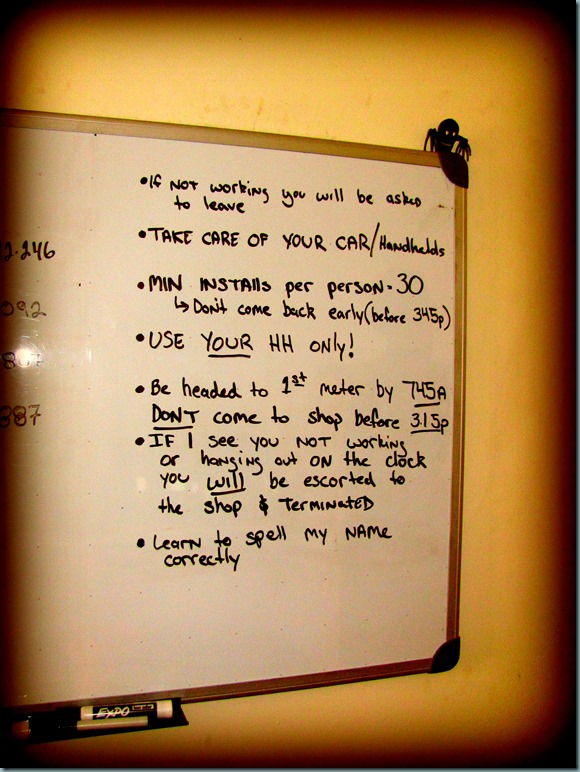 • If NOT working you will be asked
to leave
• TAKE CARE OF YOUR CAR/Handhelds
• MIN INSTALLS per person - 30
↳ Don't come back early (before 345p)
• USE YOUR HH ONLY!
• Be headed to 1st meter by 745A
DON'T come to shop before 3:15p
• IF I see you NOT working
or hanging out ON the clock
you will be escorted to
the shop & TERMINATED
• Learn to spell my NAME
correctly
2.246
092
887
EXPO